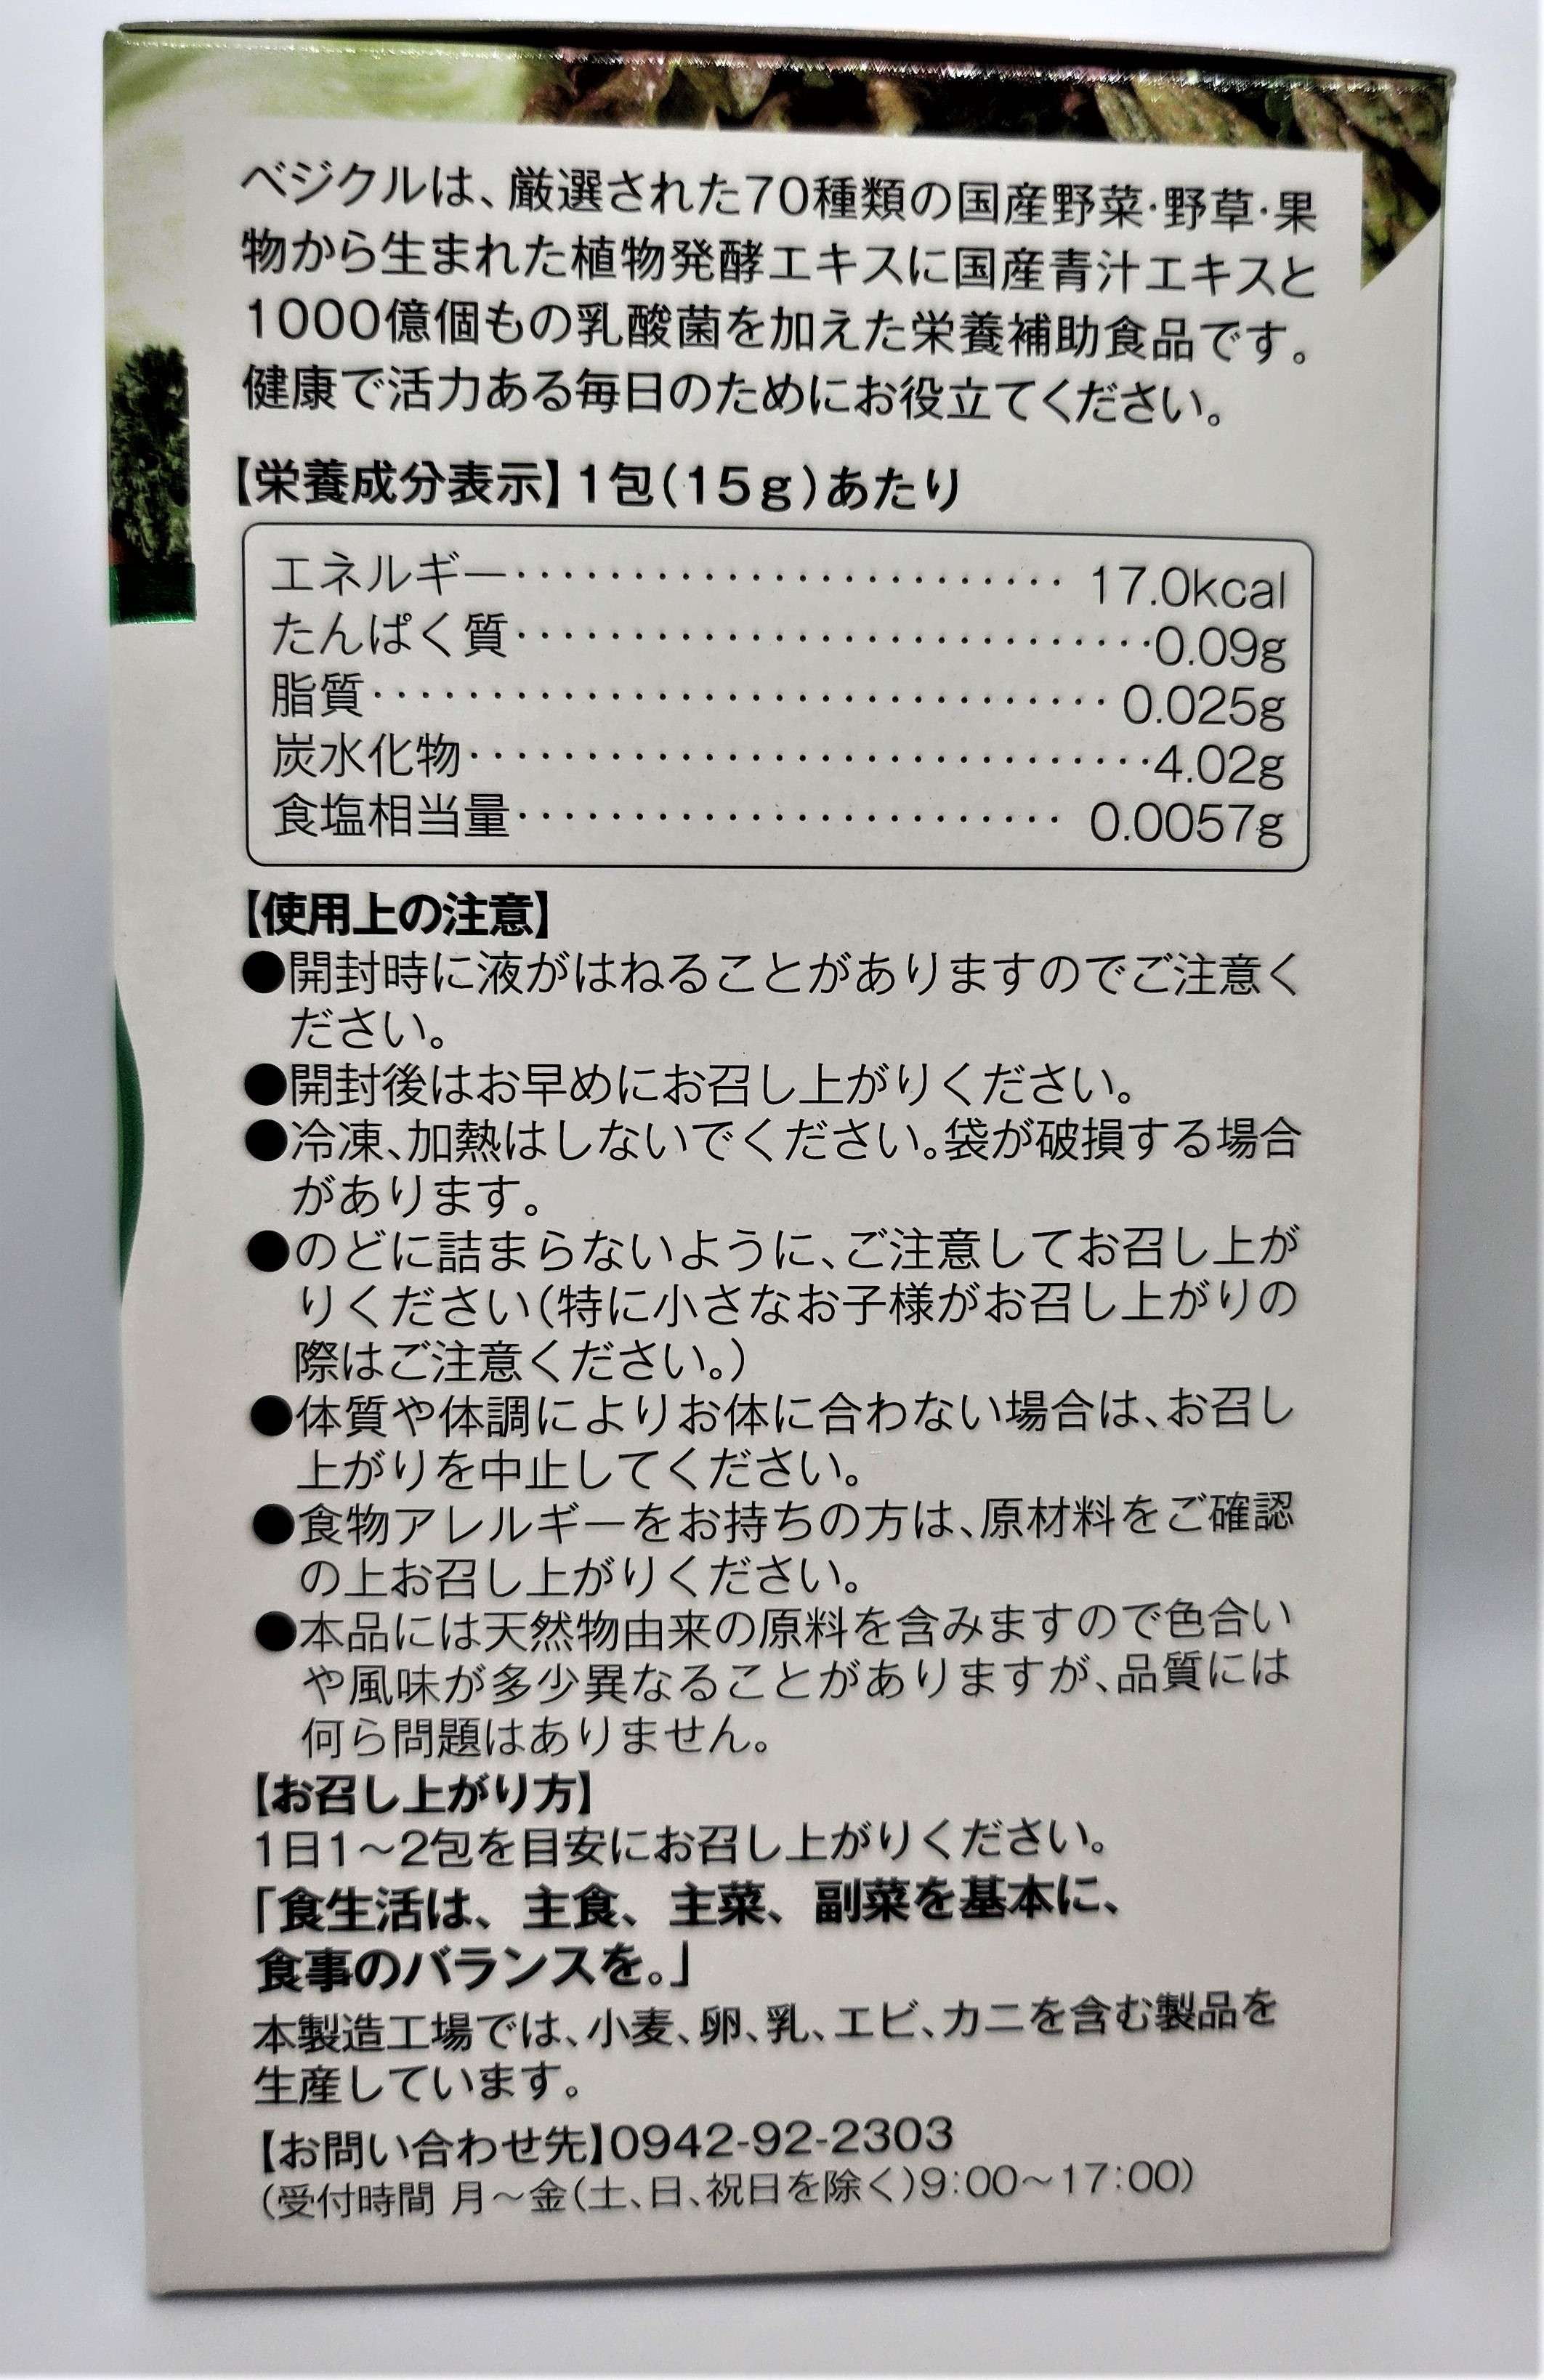 ベジクルは、厳選された70種類の国産野菜・野草・果
物から生まれた植物発酵エキスに国産青汁エキスと
1000億個もの乳酸菌を加えた栄養補助食品です。
健康で活力ある毎日のためにお役立てください。
【栄養成分表示】1包(15g)あたり
エネルギー・・・・・・・・・・・・・・・・・・・・・・・・ 17.0kcal
たんぱく質・・・・・・・・・・・・・・・・・・・・・・・・・・・・0.09g
脂質・・・・・・・・・・・・・・・・・・・・・・・・・・・・・・・・ 0.025g
炭水化物・・・・・・・・・・・・・・・・・・・・・・・・・・・・・・4.02g
食塩相当量・・・・・・・・・・・・・・・・・・・・・・・・ 0.0057g
【使用上の注意】
●開封時に液がはねることがありますのでご注意く
ださい。
●開封後はお早めにお召し上がりください。
●冷凍、加熱はしないでください。袋が破損する場合
があります。
●のどに詰まらないように、ご注意してお召し上が
りください(特に小さなお子様がお召し上がりの
際はご注意ください。)
●体質や体調によりお体に合わない場合は、お召し
上がりを中止してください。
●食物アレルギーをお持ちの方は、原材料をご確認
の上お召し上がりください。
●本品には天然物由来の原料を含みますので色合い
や風味が多少異なることがありますが、品質には
何ら問題はありません。
【お召し上がり方】
1日1～2包を目安にお召し上がりください。
「食生活は、主食、主菜、副菜を基本に、
食事のバランスを。」
本製造工場では、小麦、卵、乳、エビ、カニを含む製品を
生産しています。
【お問い合わせ先】0942-92-2303
(受付時間 月～金(土、日、祝日を除く)9:00～17:00)